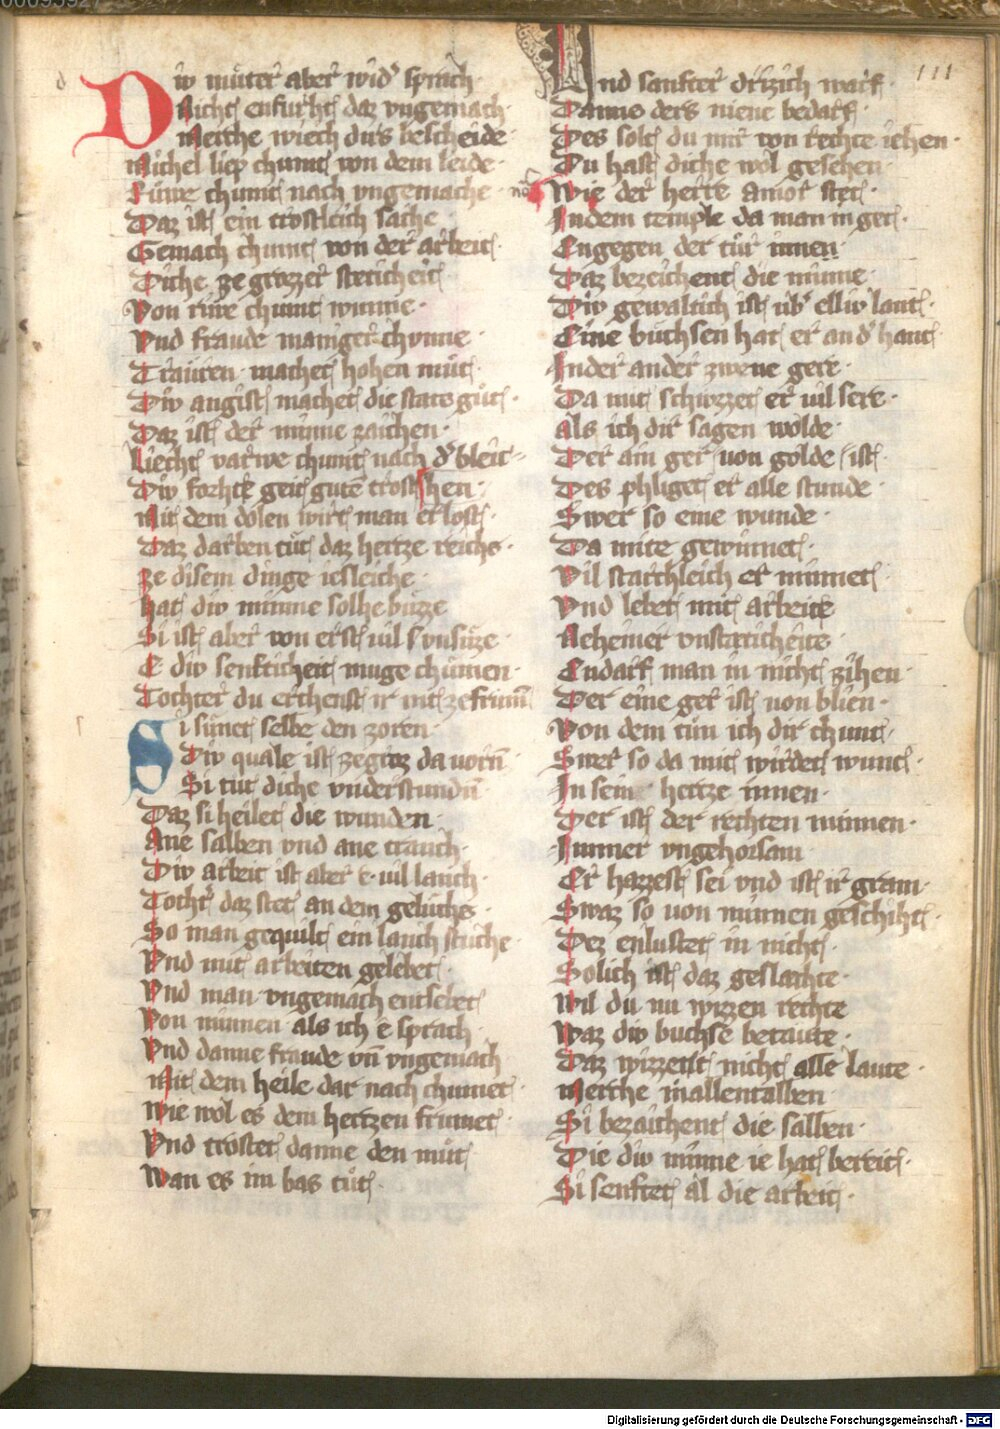 Div můter aber wid sprach·
Nicht enfurht daz vngemach·
Merche wiech dirs bescheide·
Michel liep chumt von dem leide·
Riuwe chumt nach vngemache·
Daz ist ein trostleich sache·
Gemach chumt von der arbeit·
Diche ze grozzer steticheit·
Von riwe chumt wunne·
Vnd fraude maniger chvnne·
Trauren machet hohen můt·
Div angist machet die state gůt·
Daz ist der minne zaichen·
Liecht varwe chumt nach d bleic-
Div forhte geit guten trost hen·
Mit dem dolen wirt man erlost·
Daz darben tůt daz hertze reichs·
ze disem dinge iesleiche·
hat div minne solhe buzze
Si ist aber von erst vil svnsůze·
E div senfticheit muge chůmen·
Tochter du erchenst ir nit ze frumē
Si sůnet selbe den zoren·
Div quale ist ze gitz da vorn
Si tut diche vnderstundn
Daz si heilet die wunden·
Ane salben vnd ane tranch·
Div arbeit ist aber e vil lanch·
Tocht daz stet an dem geluchs·
So man gequilt ein lanch stuche·
Vnd mit arbeiten gelebet·
Vnd man vngemach entsebet
Von minnen als ich e sprach·
Vnd danne fraude vn vngemach
Mit dem heile dar nach chumet·
Wie wol es dem hertzen frumet·
Vnd trostet danne den můt·
Wan es im bas tůt·
111
Vnd sanfter drizich warf·
Danne ders niene bedarf·
Des solt du mir von rechte iehen·
Du hast diche wol gesehen·
Wie der herre amor stet·
In dem temple da man in get·
Engegen der tůr innen·
Daz bezeichent die minne·
Div gewaltich ist ůb elliv lant·
Eine buchsen hat er an d hant·
In der ander zwene gere·
Da mit schvzzet er vil sere·
Als ich dir sagen wolde·
Der ain ger von golde ist·
Des phliget er alle stunde·
Swer so eine wunde·
Da mite gewinnet·
Vil starchleich er minnet·
Vnd lebet mit arbeite
Deheiner vnstaticheite·
Endarf man in nicht zihen·
Der eine ger ist von blien·
Von dem tůn ich dir chunt·
Swer so da mit wirdet wunt·
In seim hertze innen·
Der ist der rechten minnen·
Immer vngehorsam
Er hazzest sei vnd ist ir gram·
Swaz so von minnen geschiht·
Dez enlustet in nicht·
Solich ist daz geslachte·
Wil du nu wizzen rechte
Waz div buchse betaute·
Daz wizzent nicht alle laute·
Merche in allentalben
Si bezaichent die salben·
Die div minne ie hat bereit·
Si senftet al die arbeit·
Digitalisierung gefördert durch die Deutsche Forschungsgemeinschaft - DFG